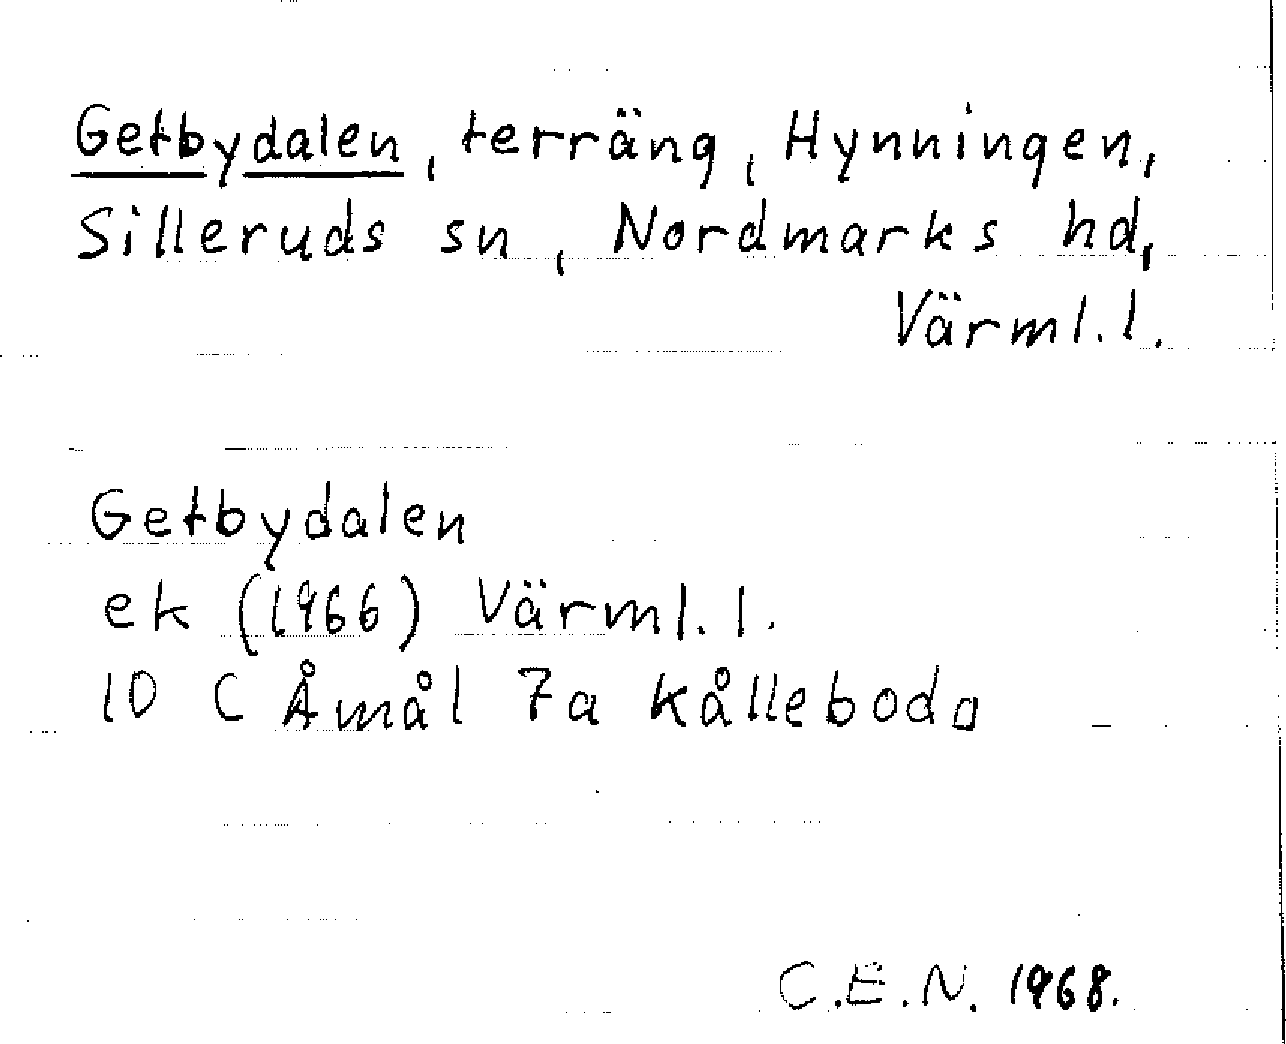 Getbydalen, terräng, Hynningen,
Silleruds sn, Nordmarks hd,
Värml. l.
Getbydalen
ek (1966) Värml. l.
10 C Åmål 7a Kålleboda
C.E.N. 1968.